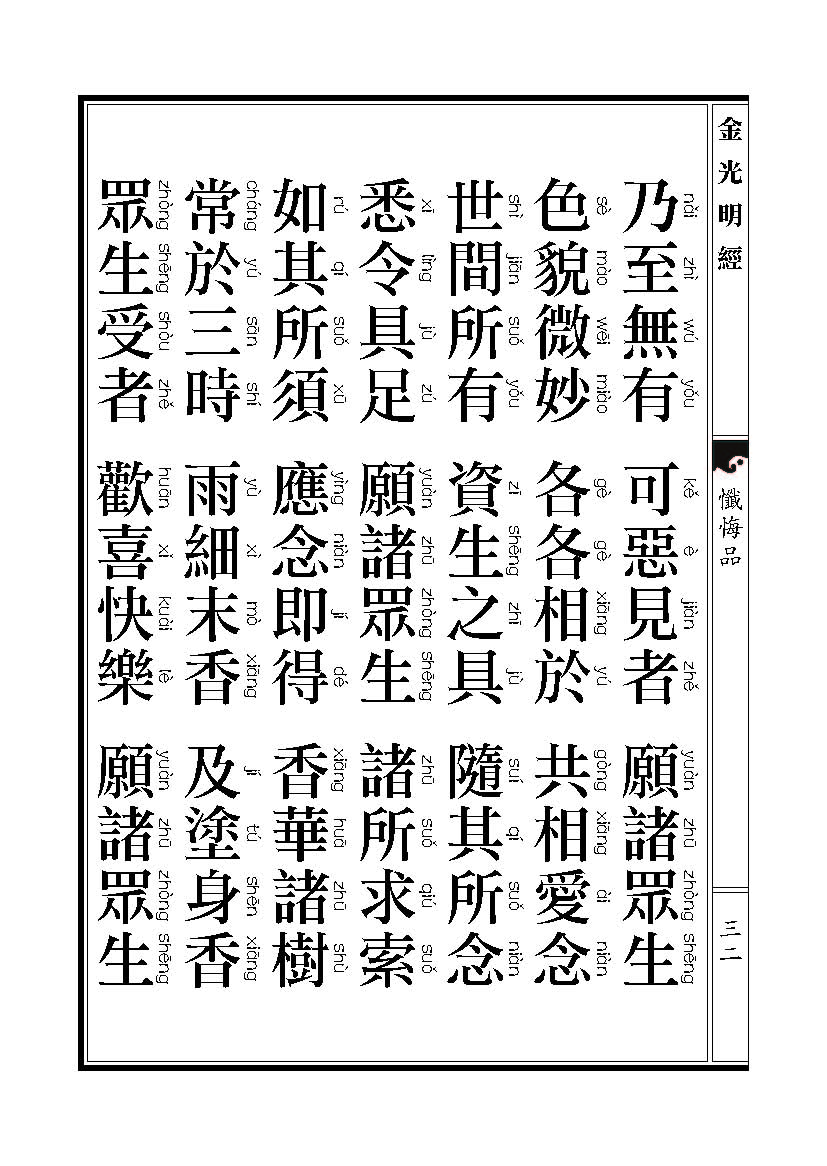 金光明經
懺悔品
三二
乃至無有 可惡見者 願諸眾生
nǎi zhì wú yǒu kě è jiàn zhě yuàn zhū zhòng shēng
色貌微妙 各各相於 共相愛念
sè mào wēi miào gè gè xiāng yú gòng xiāng ài niàn
世間所有 資生之具 隨其所念
shì jiān suǒ yǒu zī shēng zhī jù suí qí suǒ niàn
悉令具足 願諸眾生 諸所求索
xī lìng jù zú yuàn zhū zhòng shēng zhū suǒ qiú suǒ
如其所須 應念即得 香華諸樹
rú qí suǒ xū yìng niàn jí dé xiāng huā zhū shù
常於三時 雨細末香 及塗身香
cháng yú sān shí yù xì mò xiāng jí tú shēn xiāng
眾生受者 歡喜快樂 願諸眾生
zhòng shēng shòu zhě huān xǐ kuài lè yuàn zhū zhòng shēng